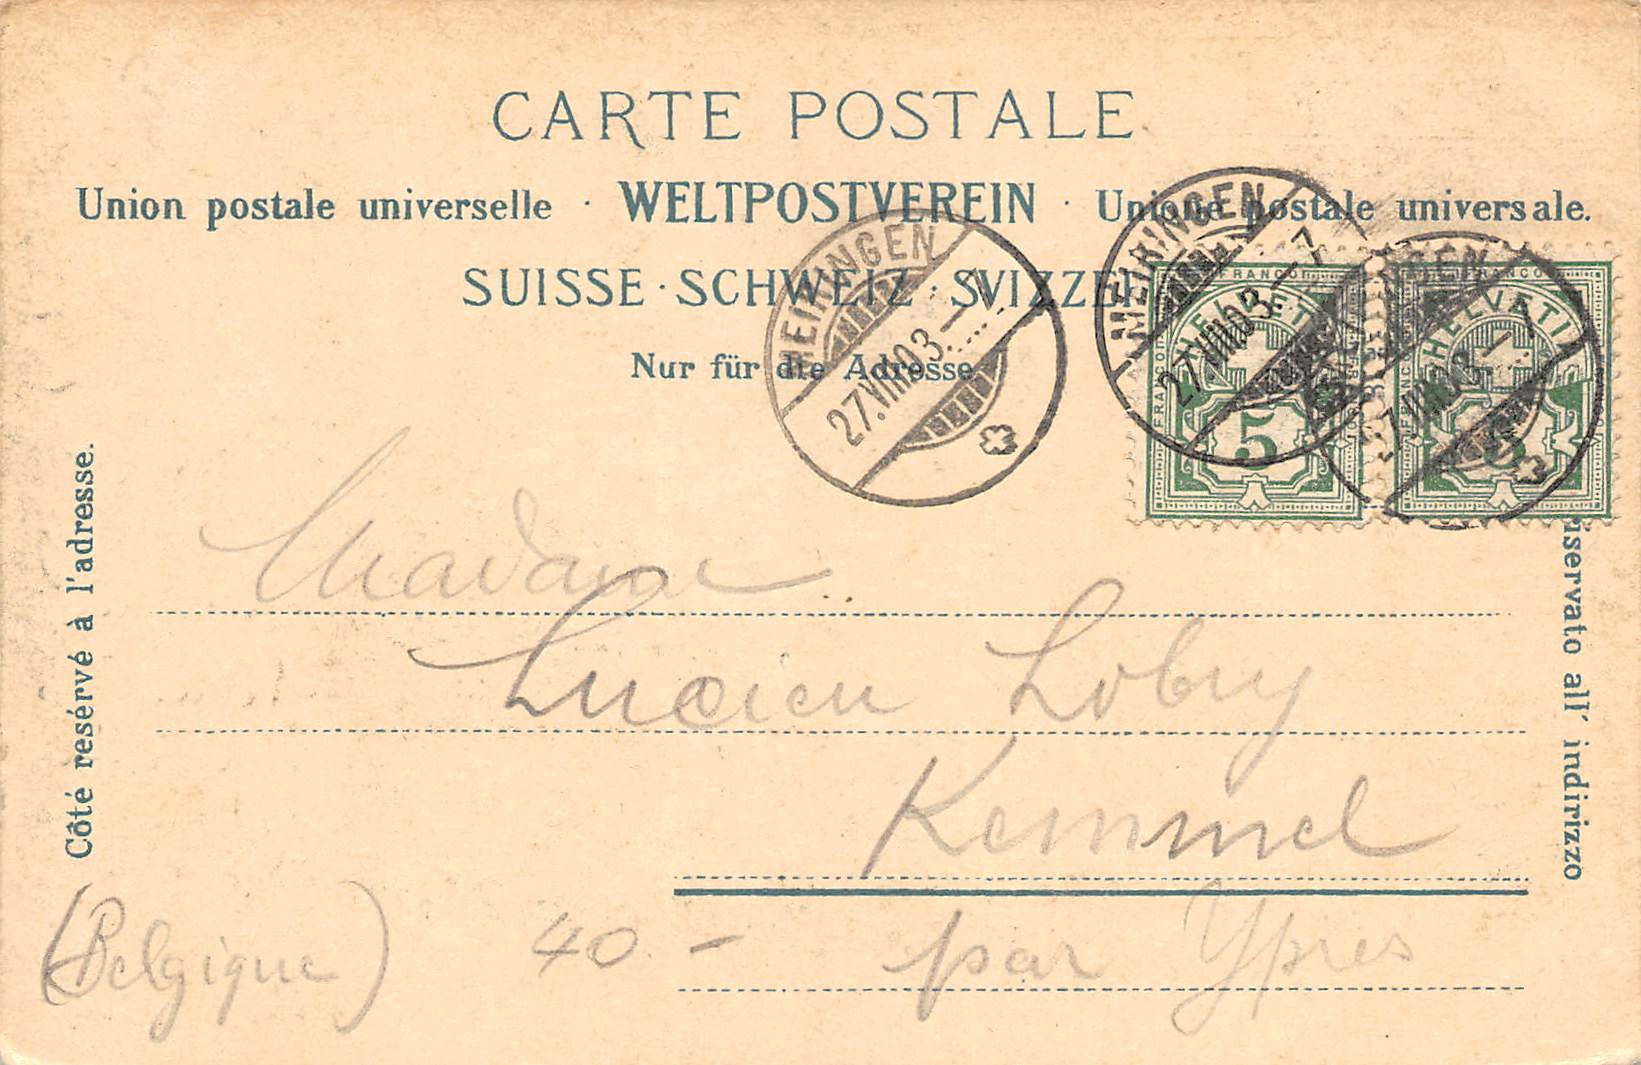 CARTE POSTALE
Union postale universelle · WELTPOSTVEREIN · Unione postale universale.
SUISSE · SCHWEIZ · SVIZZERA
Nur für die Adresse
MEIRINGEN
27.VIII.03.–7
MEIRINGEN
27.VIII.03.–7
27.VIII.03.–7
FRANCO
HELVETIA
5
FRANCO
HELVETIA
5
Côté resérvé à l'adresse.
riservato all' indirizzo
Madame
Lucien Lobry
Kemmel
par Ypres
(Belgique)
40 –